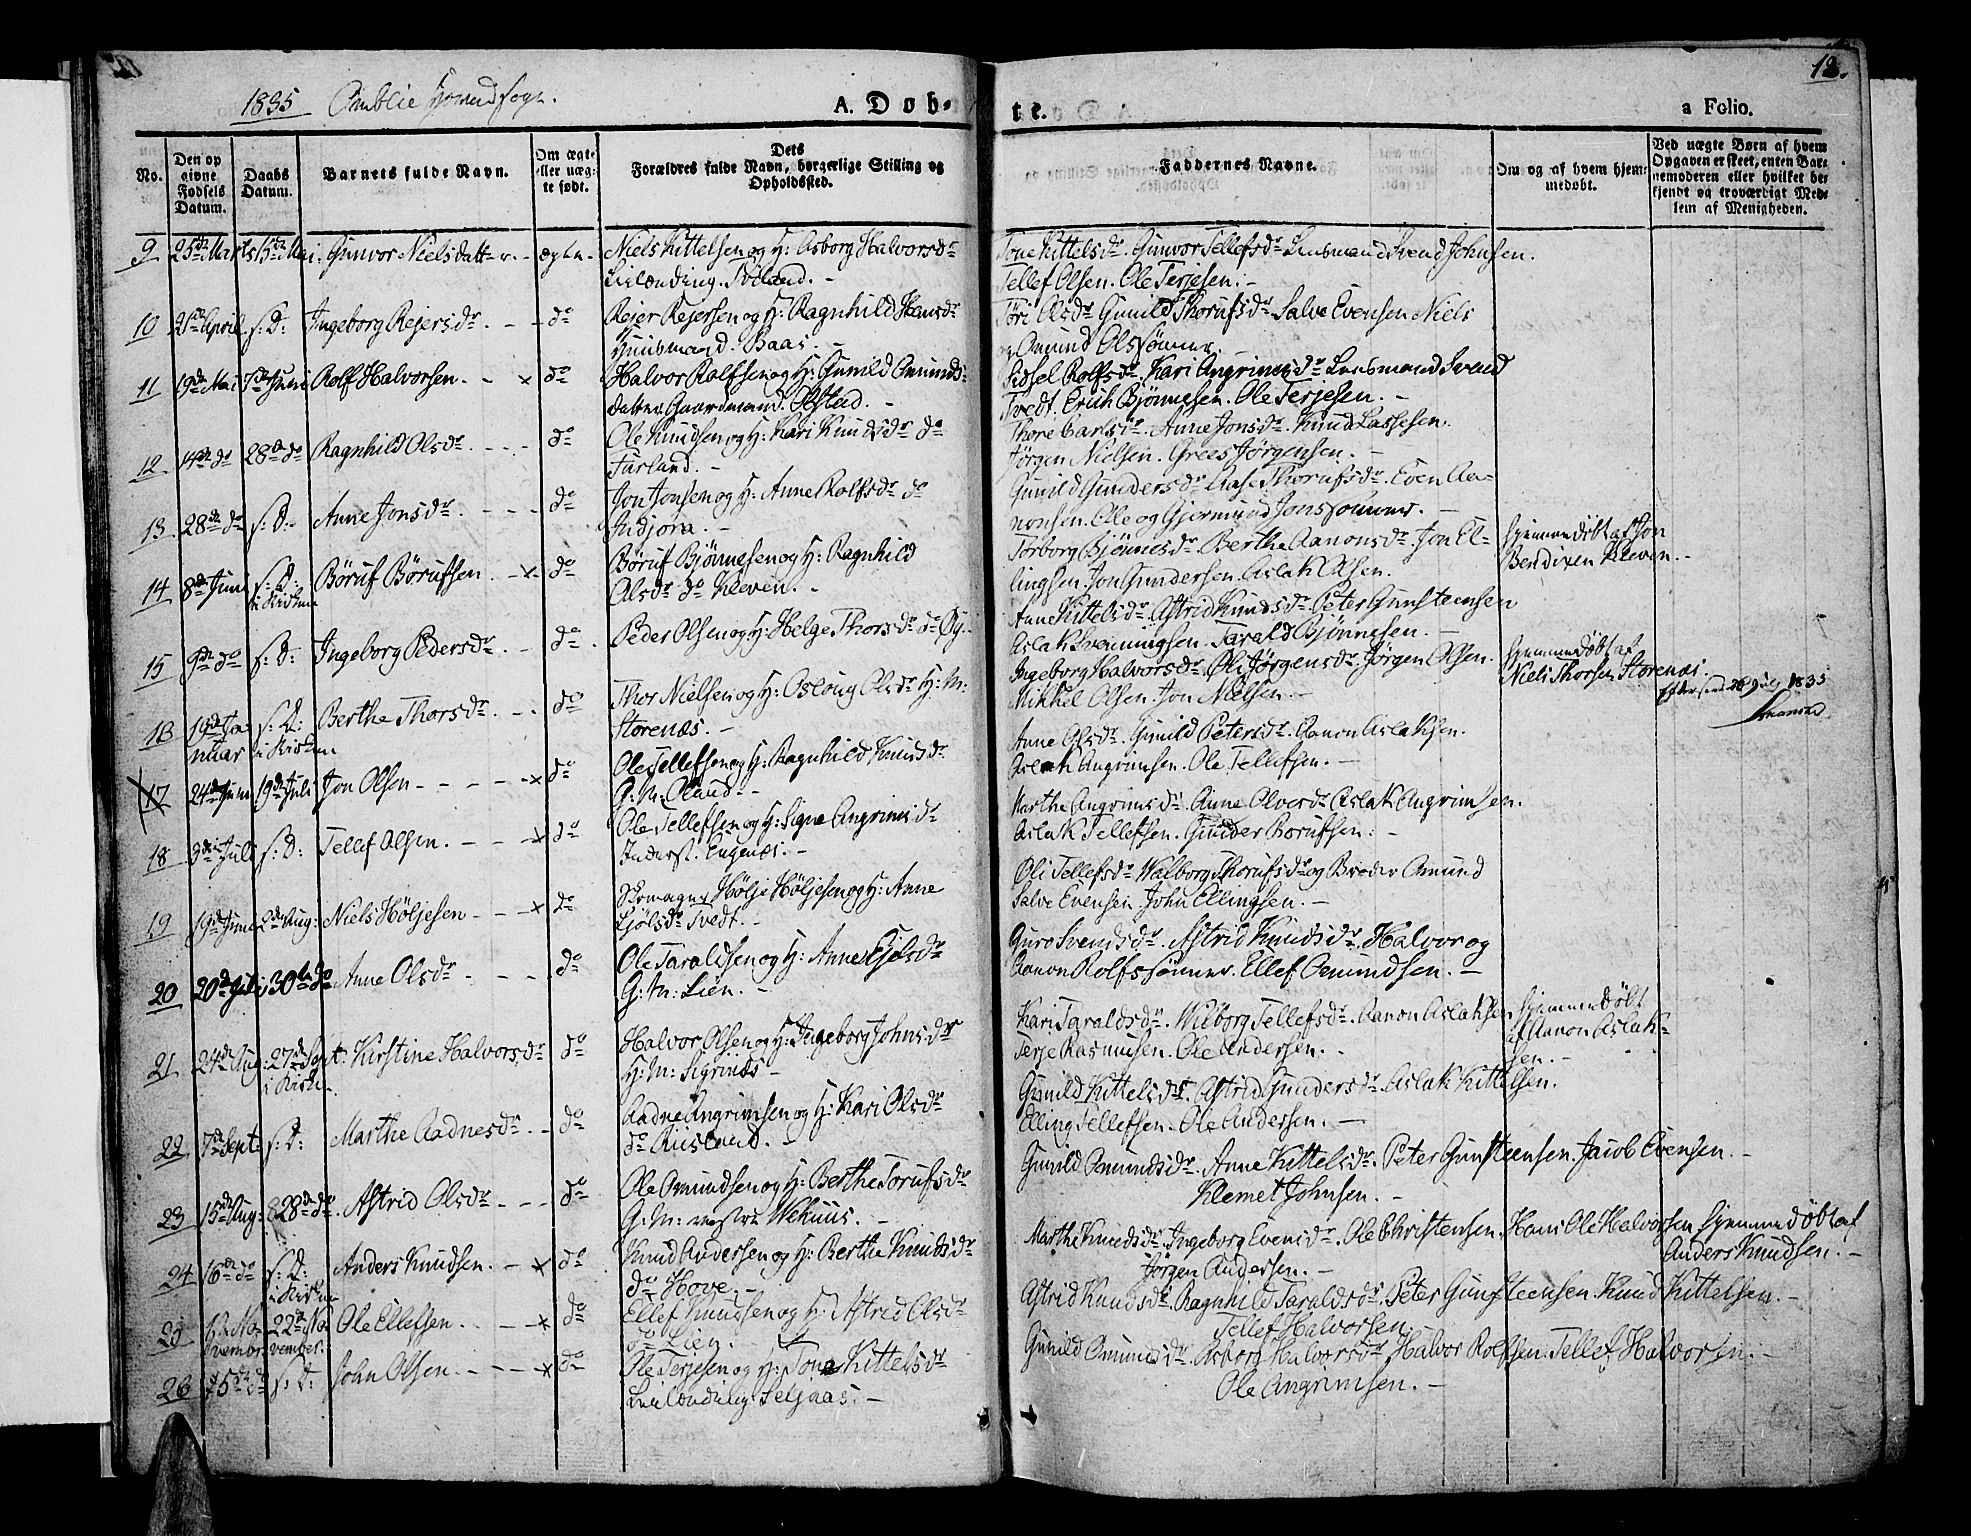 1835 Omblie Hovedsogn.
A. Døb-
te.
a Folio.
12.
No.
Den op
givne
Fødsels
Datum.
Daabs
Datum.
Barnets fulde Navn.
Om ægt-
eller uæg-
te født.
Dets
Forældres fulde Navn, borgerlige Stilling og
Opholdssted.
Faddernes Navne.
Om og af hvem hjem-
medøbt.
Ved uægte Børn af hvem
Opgaven er skeet, enten Bar-
nemoderen eller hvilket be-
kjendt og troværdigt Med-
lem af Menigheden.
9 25de Marts 15de Mai Gunvor Nielsdatter. ægte. Niels Kittelsen og H: Asborg Halvorsdr
Leilænding. Tveland.
Tone Kittelsdr. Gunvor Tellefsdr. Lensmand Svend Johnsen.
Tellef Olsen. Ole Terjesen.
10 21de April s: D: Ingeborg Rejersdr. do Rejer Rejersen og H: Ragnhild
Huusmand. Baas.
Tøri Olsdr Gunild Thorufsdr Salve Evensen Niels
og Omund Olssønner.
11 19de Mai 7de Juni Rolf Halvorsen. x do Halvor Rolfsen og H: Gunild Omunds-
datter Gaardmand. Olstad.
Sidsel Rolfsdr. Kari Angrimsdr Lensmand Svend
Tvedt. Erich Bjønnesen. Ole Terjesen.
12 14de do 28de do Ragnhild Olsdr. do Ole Knudsen og H: Kari Knudsdr do
Thore Carlsdr. Anne Jonsdr. Knud Lassesen.
Jørgen Nielsen. Grees Jørgensen.
13 28de do s: D: Anne Jonsdr. do Jon Jonsen og H: Anne Rolfsdr do
Gunild Gundersdr Aase Thorufsdr. Even Aa-
nonsen. Ole og Gjermund Jonssønner.
14 8de Juni s: D: i Kirken Børuf Børufsen. x do Børuf Bjønnesen og H: Ragnhild
Olsdr do Kleven.
Torborg Bjønnesdr. Berthe Aanonsdr. Jon El-
lingsen. Jon Gundersen. Aslak Olsen.
hjemmedøbt af Jon
Bendixen Kleven.
15 9de do s: D: Ingeborg Pedersdr. do. Peder Olsen og H: Helge Thorsdr do
Anne Kittelsdr. Astrid Knudsdr. Peter Gunsteensen
Aslak Svenningsen. Tarald Bjønnesen.
16 Ja-
nuar s: D: i Kirken Berthe Thorsdr. do Thor Nielsen og H: Osloug Olsdr H: M:
Storenæs.
Ingeborg Halvorsdr. Oli Jørgensdr. Jørgen Olsen.
Mikkel Olsen. Jon Nielsen.
hjemmedøbt af
Niels Thorsen Storenæs.
1835
17 24de Juni 19de Juli Jon Olsen x do Ole Tellefsen og H: Ragnhild Knudsdr
G. M. Oland.
Anne Olsdr. Gunild Petersdr. Aanon Aslaksen.
Aslak Angrimsen. Ole Tellefsen.
18 3die Juli s: D: Tellef Olsen. x do Ole Tellefsen og H: Signe Angrimsdr
Inderst.
Marthe Angrimsdr. Anne Olversdr Aslak Angrimsen.
Aslak Tellefsen. Gunder Borufsen.
19 19de Juni 2den Aug: Niels Høljesen x do Skomager Hølje Høljesen og H: Anne
Tvedt.
Oli Tellefsdr Walborg Thorufsdr og Broder Omund
Salve Evensen. John Ellingsen.
20 20de Juli 30te do Anne Olsdr do Ole Taraldsen og H: Anne
G: M: Lien.
Guro Svendsdr. Astrid Knudsdr. Halvor og
Aanon Rolfssønner. Ellef Omundsen.
21 24de Aug: 27de Sept. i Kirken Kirstine Halvorsdr do Halvor Olsen og H: Ingeborg Johnsdr
H: M: Sigrinæs
Kari Taraldsdr. Wilborg Tellefsdr. Aanon Aslaksen
Terje Rasmusen. Ole Andersen.
hjemmedøbt
af Aanon Aslak-
sen.
22 7de Sept: s: D: Marthe Aadnesdr. do Aadne Angrimsen og H: Kari Olsdr
do Risland.
Gunild Kittelsdr. Astrid Gundersdr. Aslak Kittelsen.
Elling Tellefsen. Ole Andersen.
23 15de Aug: 28de do. Astrid Olsdr do Ole Omundsen og H: Berthe Torufsdr
G: M: vestre Wehuus.
Gunild Omundsdr. Anne Kittelsdr. Peter Gunsteensen. Jacob Evensen.
Klemet Johnsen.
24 16de do s: D: i Kirken Anders Knudsen. x do Knud Andersen og H: Berthe Knudsdr
do Hove.
Marthe Knudsdr. Ingeborg Evensdr. Ole Christensen. Hans Ole Halvorsen hjemmedøbt af
Jørgen Andersen.
Anders Knudsen.
25 No-
vembr. 22de No-
vember. Ole Ellefsen. x do Ellef Knudsen og H: Astrid Olsdr
do Lien.
Astrid Knudsdr. Ragnhild Taraldsdr. Peter Gunsteensen. Knud Kittelsen.
Tellef Halvorsen.
26 5de do s: D: John Olsen. x do Ole Terjesen og H: Tone Kittelsdr
Leilænding.
Gunild Omundsdr. Asborg Halvorsdr Halvor Rolfsen. Tellef Halvorsen.
Ole Angrimsen.